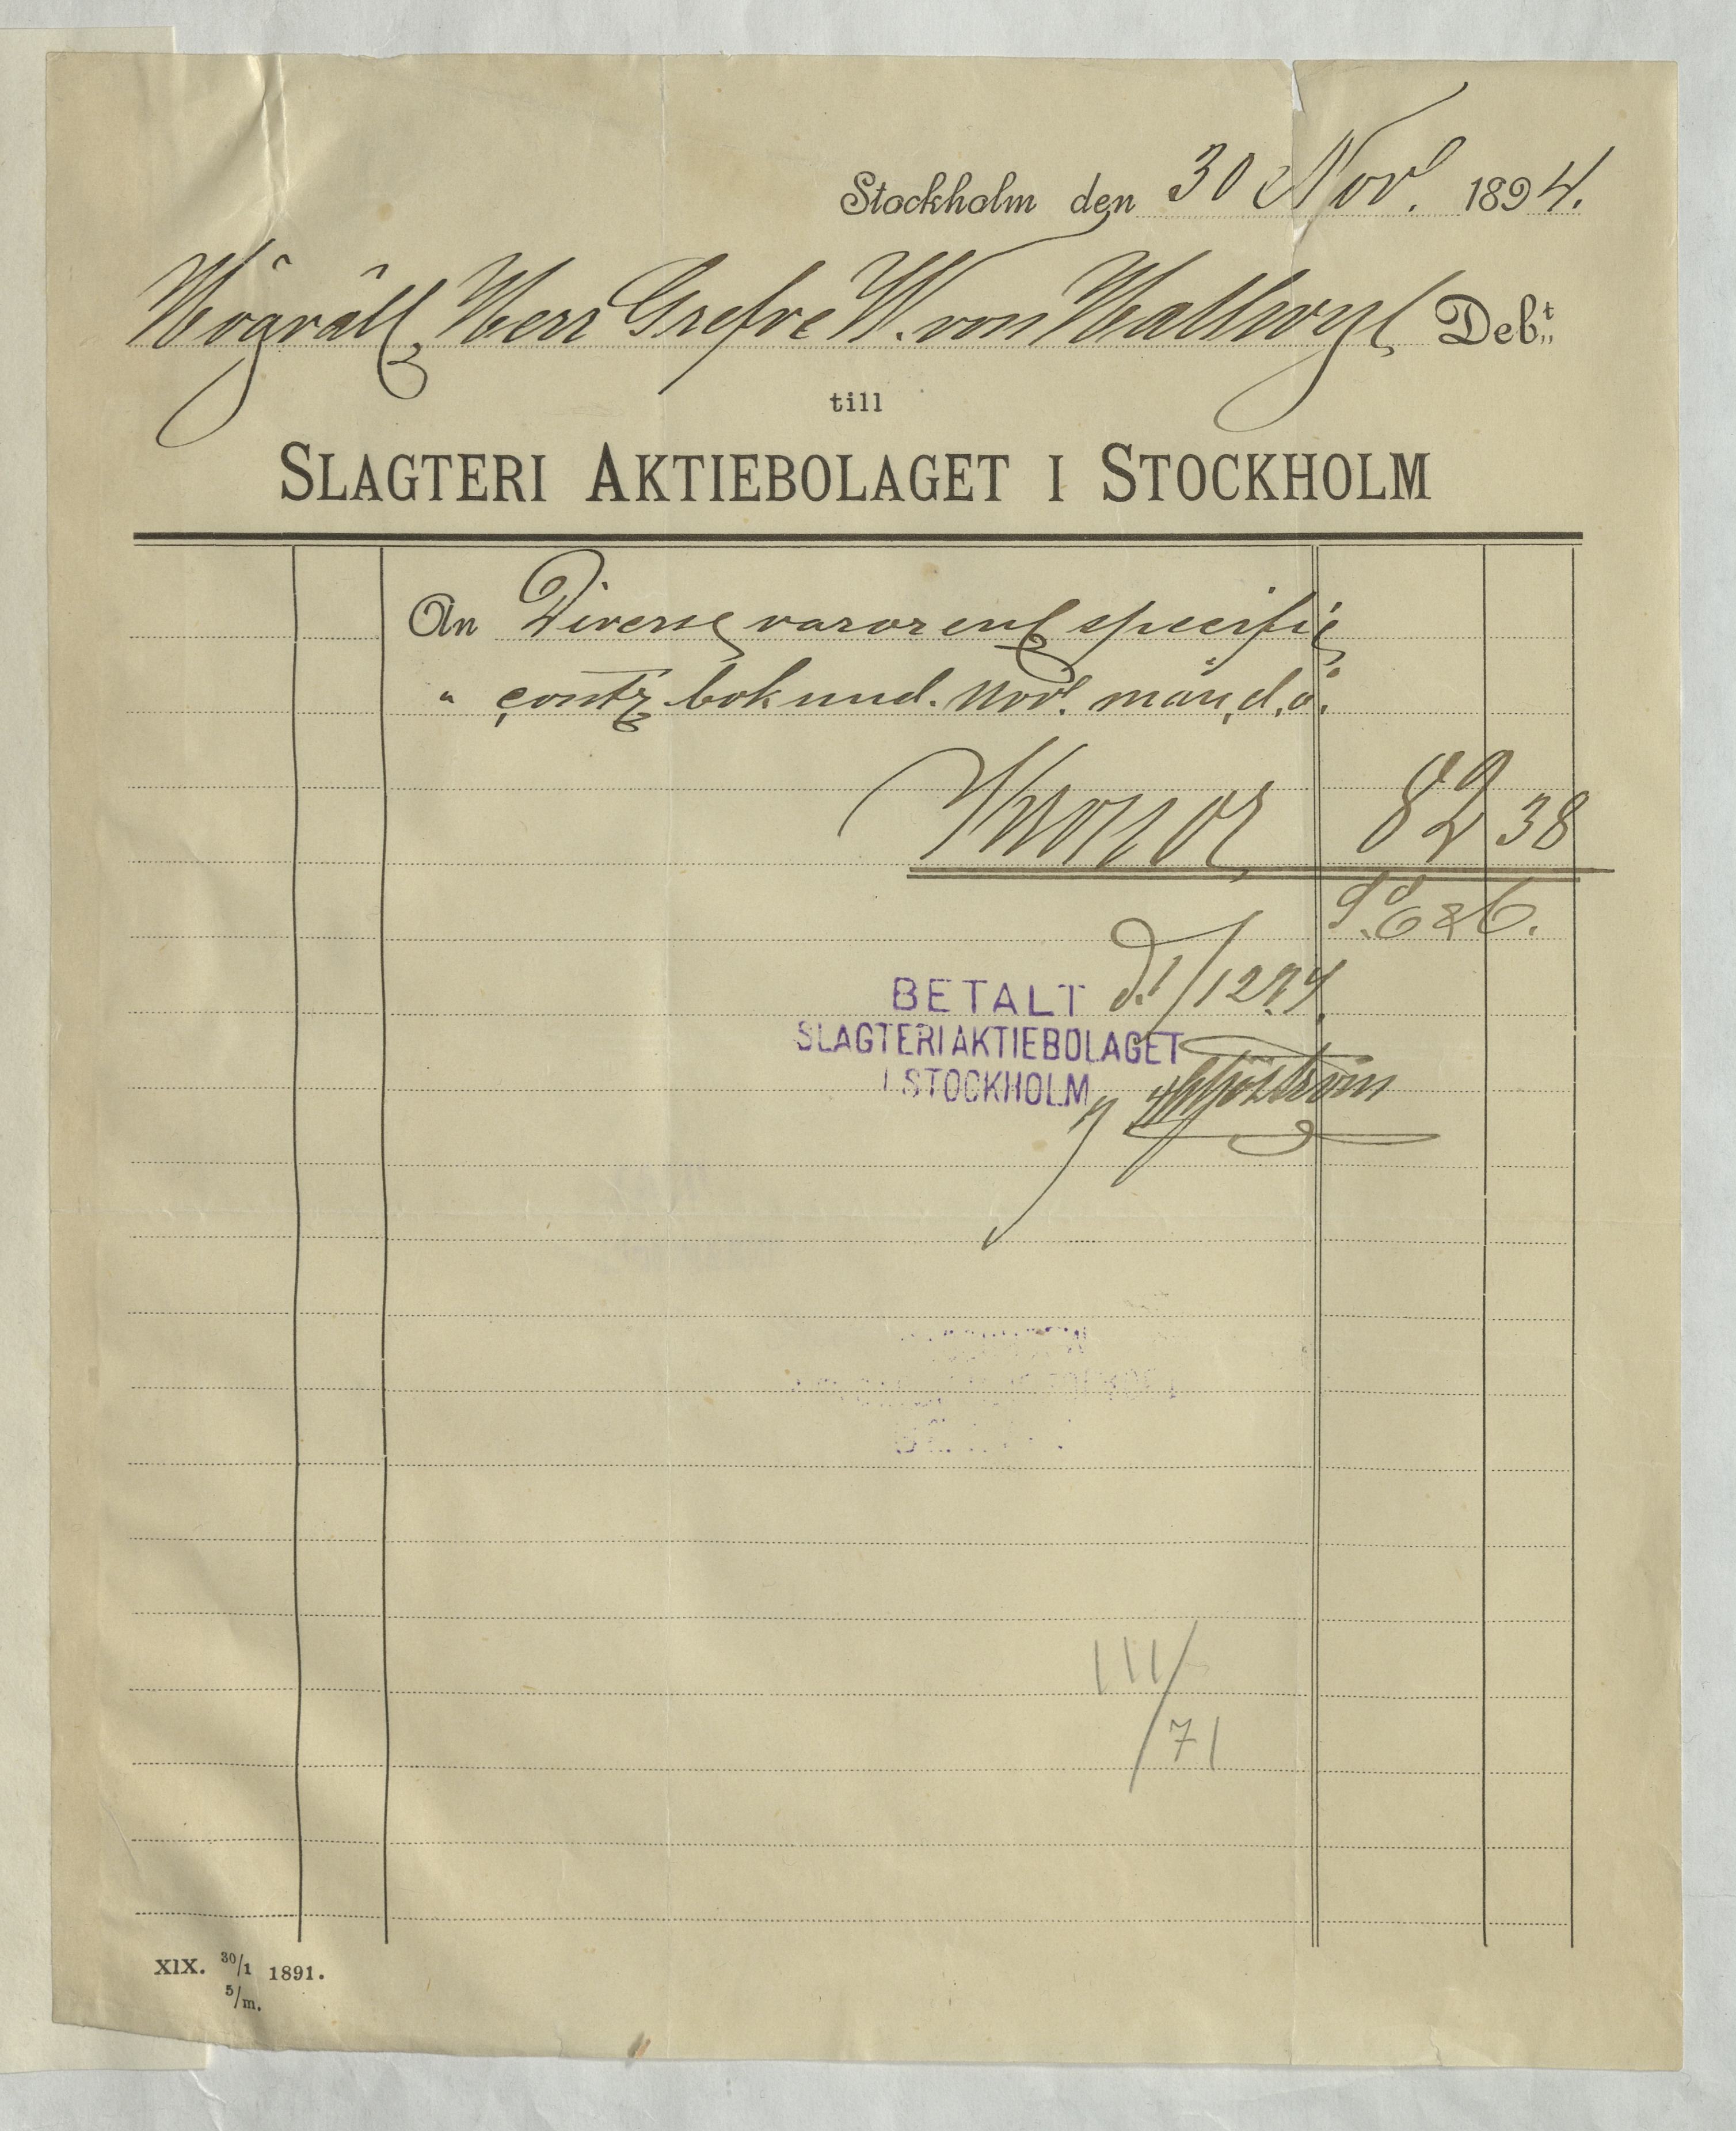 Stockholm den 30 Nov. 1894.
Högväll. Herr Grefve W. von Hallwyl Debt.
till
SLAGTERI AKTIEBOLAGET I STOCKHOLM
An Diverse varor enl specific
" contr bok und. Nov. mån. d. å.
Kronor 82 38
S. E & O.
BETALT d. 1/12 94.
SLAGTERIAKTIEBOLAGET
I STOCKHOLM
Sjöström
111/71
XIX. 30/1 1891.
5/m.